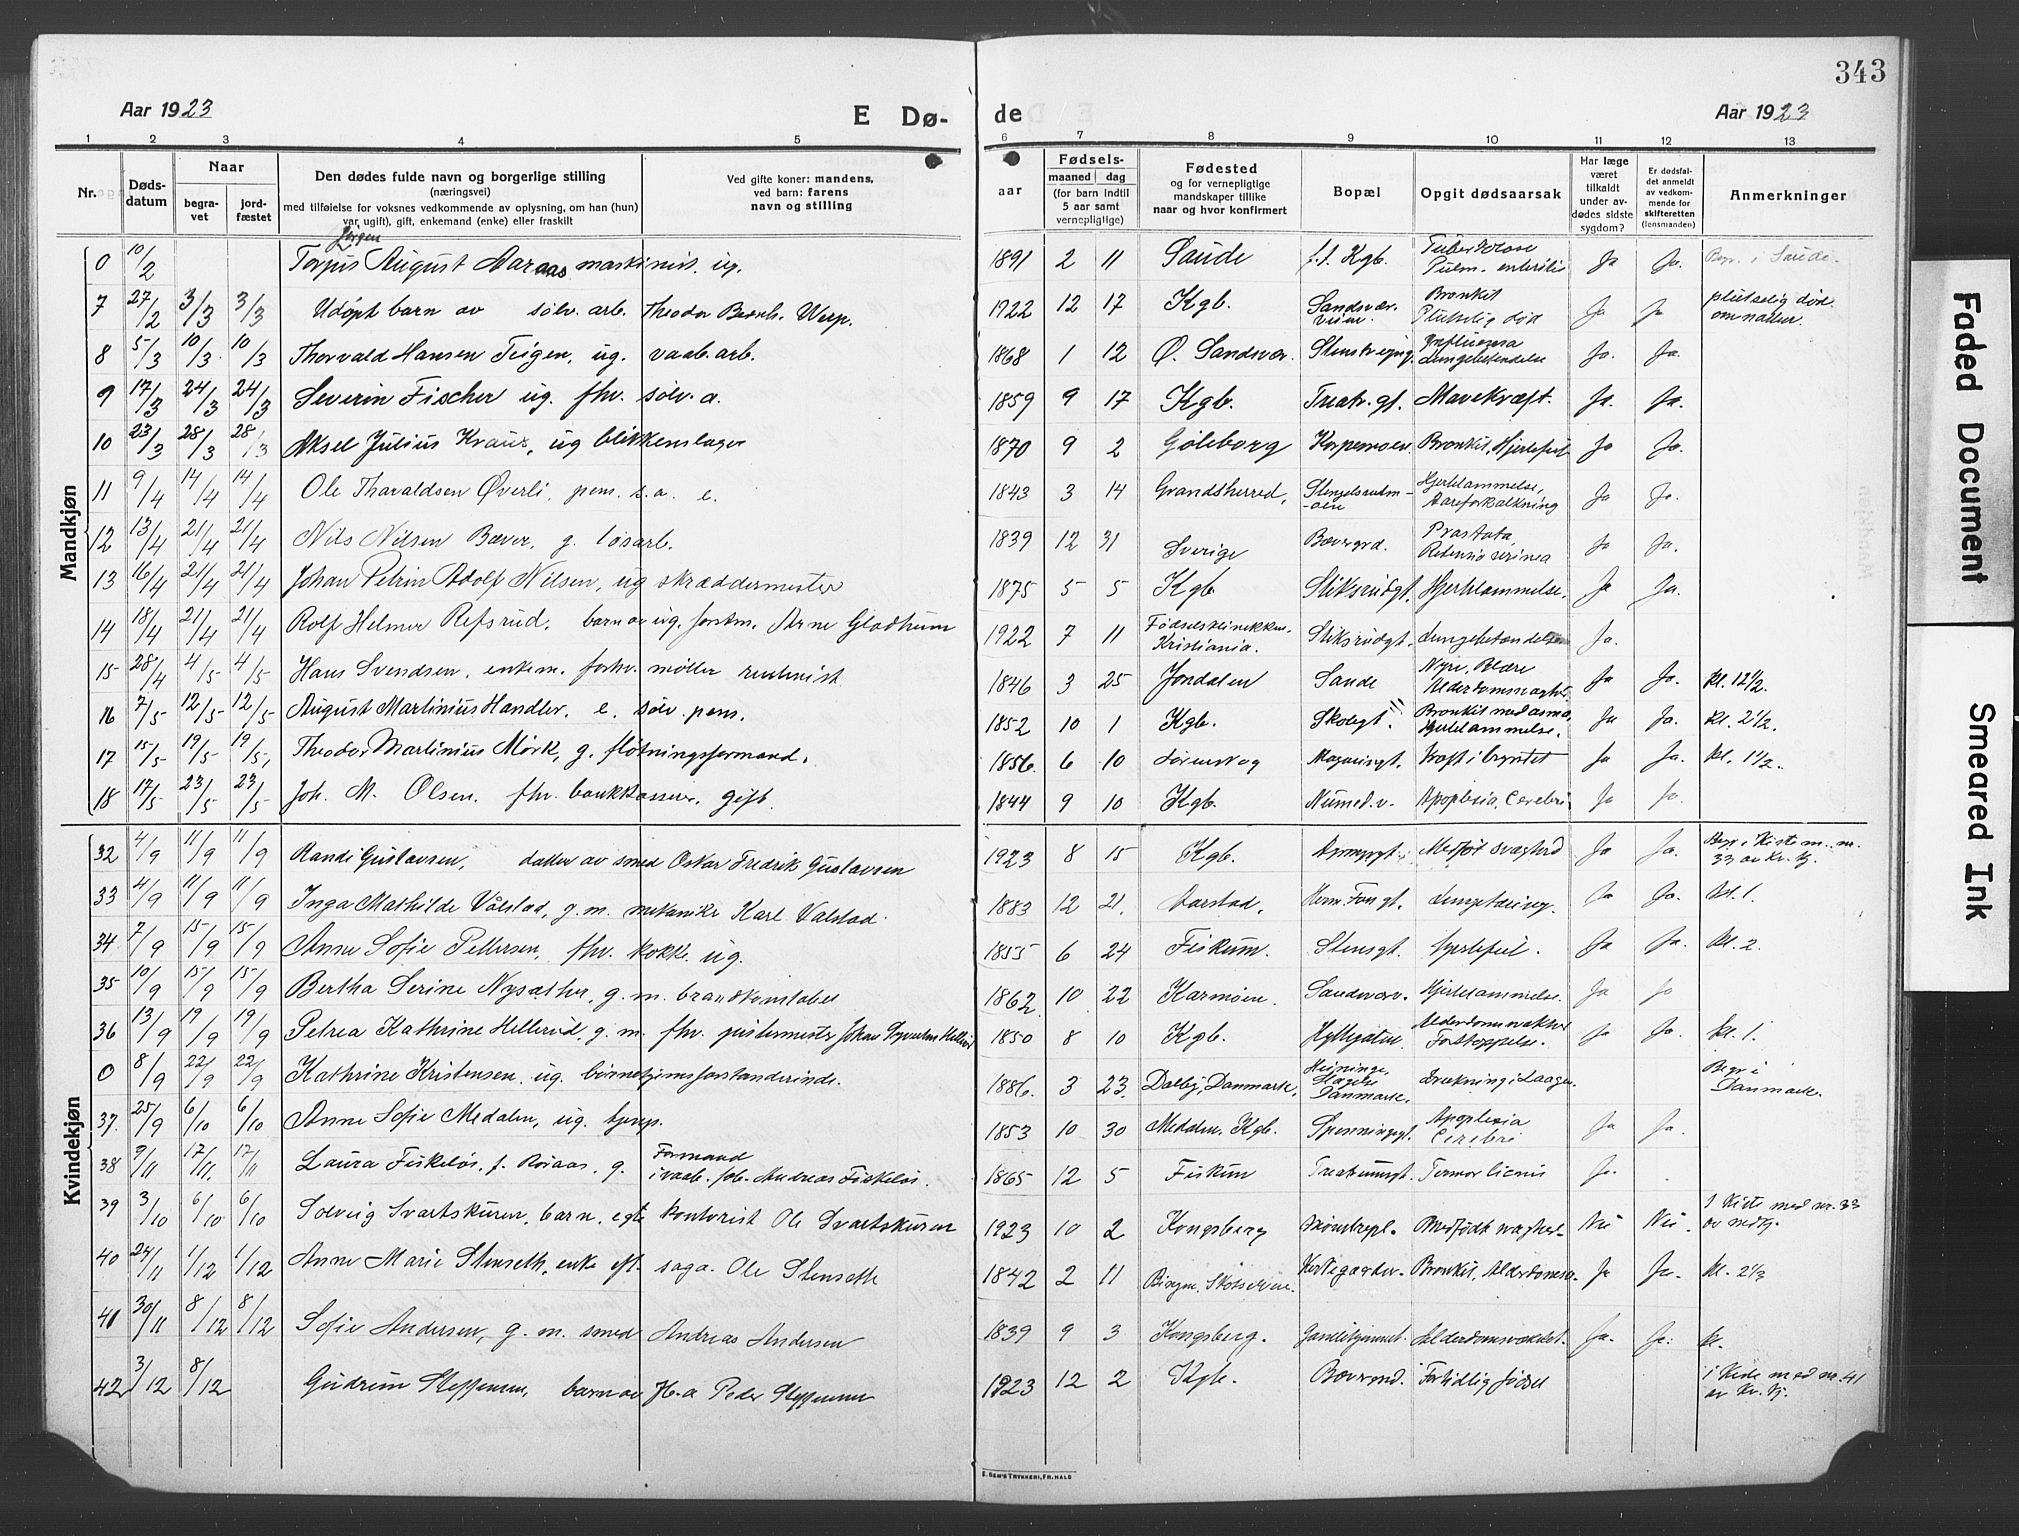 343
Aar 1923
E Dø-
de
Aar 1923
1 2 3 4 5 6 7 8 9 10 11 12 13
Nr.
Døds-
datum
Naar
begra-
vet
jord-
fæstet
Den dødes fulde navn og borgerlige stilling
(næringsvei)
med tilføielse for voksnes vedkommende av oplysning, om han (hun)
var ugift), gift, enkemand (enke) eller fraskilt
Ved gifte koner: mandens,
ved barn: farens
navn og stilling
aar
Fødsels-
maaned dag
(for barn indtil
5 aar samt
vernepligtige)
Fødested
og for vernepligtige
mandskaper tillike
naar og hvor konfirmert
Bopæl
Opgit dødsaarsak
Har læge
været
tilkaldt
under av-
dødes sidste
sygdom?
Er dødsfal-
det anmeldt
av vedkom-
mende for
skifteretten
(lensmanden)
Anmerkninger
Mandkjøn
Jørgen
0 10/2 Torjus August Aaraas maskinist. ug. 1891 2 11 Saude f.t. Kgb. Tuberkulose Pulm. enteritis Ja Ja. Begr. i Saude.
7 27/2 3/3 3/3 Udøpt barn av sølv. arb. Theodor Bernh. Werp. 1922 12 17 Kgb. Bronkit Plutselig død Ja Ja plutselig død om natten.
8 5/3 10/3 10/3 Thorvald Hansen Teigen, ug. vaab. arb. 1868 1 12 Ø. Sandsvær. Influensa Lungebetendelse Ja. Ja.
9 17/3 24/3 24/3 Severin Fischer ug. fhv. sølv. a. 1859 9 17 Kgb. Treatr. gt. Mavekræft. Ja. Ja.
10 23/3 28/3 28/3 Aksel Julius Kraus, ug blikkenslager 1870 9 2 Gøteborg Bronkit, Hjertefeil Ja Ja.
11 9/4 14/4 14/4 Ole Thoraldsen Øverli, pens. s. a. e. 1843 3 14 Grandsherred, Hjertelammelse, Aareforkalkning Ja Ja.
12 13/4 21/4 21/4 Nils Nilsen Bæver, g. løsarb. 1839 12 31 Sverige Bævergrd. Prostata, Ja Ja
13 16/4 21/4 21/4 Johan Petrin Adolf Nilsen, ug skræddermester 1875 5 5 Kgb Stiksrudgt. Hjertelammelse. Ja Ja.
14 18/4 21/4 21/4 Rolf Helmer Refsrud, barn av ug. forstm. Arne Gladheim 1922 7 11 Kristiania. Stiksrudgt. Lungebetændelse Ja.
15 28/4 4/5 4/5 Hans Svendsen, enkem. forhv. møller 1846 3 25 Jondalen Sande Nyre, Blære Ja Ja. kl. 12 1/2.
16 7/5 12/5 12/5 August Martinius Handler, e. sølv. pens. 1852 10 1 Kgb. Skolegt. Bronkit med asma, Hjertelammelse. Ja Ja. kl. 2 1/2.
17 15/5 19/5 19/5 Theodor Martinius Mørk, g. fløtningsformand. 1856 6 10 Kræft i brystet Ja Ja. kl. 1 1/2.
18 17/5 23/5 23/5 Joh. M. Olsen, fhv. bankkasserer, gift. 1844 9 10 Kgb. Numed. v. Apoplexia, Cerebri Ja Ja.
Kvindekjøn
32 4/9 11/9 11/9 Randi Gustavsen, datter av smed Oskar Fredrik Gustavsen 1923 8 15 Kgb. Medfødt svaghed Ja Ja. Begr i Kiste m. nr. 33 av Kv. kj.
33 4/9 11/9 11/9 Inga Mathilde Vålstad, g. m. mekanike Karl Valstad. 1883 12 21. Herm. Fossgt. Ja Ja. kl. 1.
34 7/9 15/9 15/9 Anne Sofie Pettersen, fhv. kokke. ug. 1855 6 24 Fiskum. Stensgt. Hjertefeil. Ja Ja. kl. 2.
35 10/9 15/9 15/9 Bertha Serine Nysæther, g. m. brandkonstabel 1862 10 22 Karmøen. Sandsværv. Hjertelammelse. Ja Ja
36 13/9 19/9 19/9 Petrea Kathrine Hellerud, g. m. fhv. pustermester Johan 1850 8 10 Kgb. Hyttegaten. Forstoppelse. Ja Ja. kl. 1.
0 8/9 22/9 22/9 Kathrine Kristensen. ug. børnehjemsforstanderinde. 1886. 3 23. Dalby, Danmark. Heininge, Slagelse Danmark. Drukning i Laagen. Begr i Danmark.
37. 25/9 6/10 6/10 Anne Sofie Medalen, ug. hjemp. 1853 10 30 Meddalen, Kgb. Spenningsgt. Apoplexia Cerebri Ja Ja.
38 9/11 17/11 17/11 Laura Fiskeløs, f. Røiaas, g. Formand i vaab. fab. Andreas Fiskeløs. 1865 12 5 Fiskum Ja.
39 3/10 6/10 6/10 Solveig Svartskuren, barn, egte kontorist Ole Svartskuren 1923 10 2 Kongsberg Medfødt svaghet- Nei Nei. I Kiste med nr. 33 av
40 24/11 1/12 1/12 Anne Marie Stenseth, enke eft. saga. Ole Stenseth 1842 2 11 Bronkit, Ja Ja. kl. 2 1/3
41 30/11 8/12 8/12 Sofie Andersen, g. m. smed Andreas Andersen 1839 9 3 Kongsberg. Gamlehjemmet. Alderdomsvækket. Ja. Ja. kl.
42 3/12 8/12 Gudrun Steffensen, barn av H. a Peder Steffensen 1923 12 2 Kgb. Bævergrd. Fortidlig fødsel i Kiste med nr. 41 av Kv. kj.
E. SEM'S TRYKKERI, FR.HALD
Faded Document
Smeared Ink